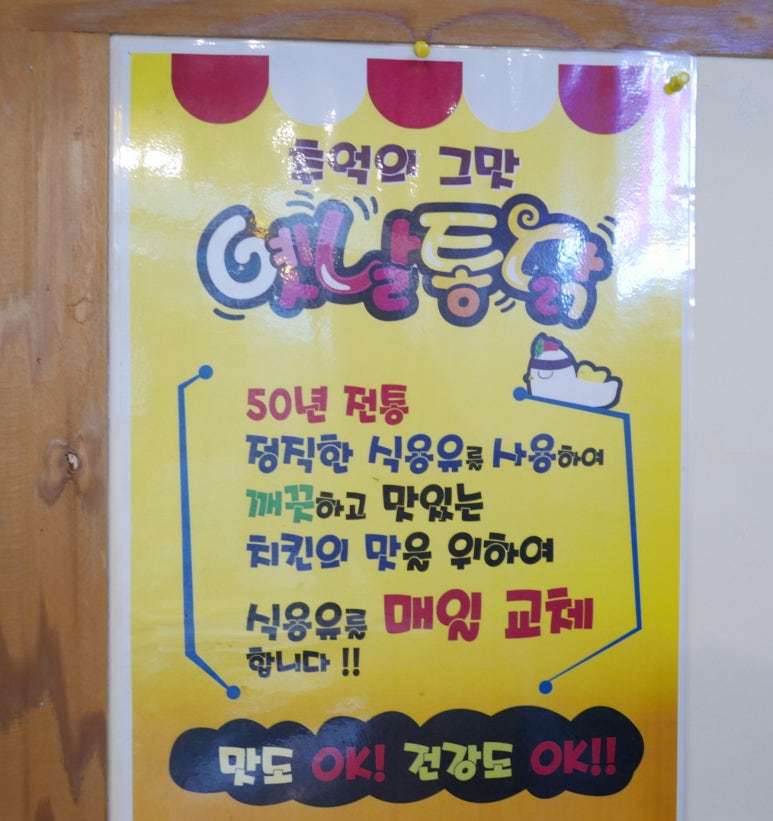 추억의 그맛
옛날통닭
50년 전통
정직한 식용유를 사용하여
깨끗하고 맛있는
치킨의 맛을 위하여
식용유를 매일 교체
합니다 !!
맛도 OK! 건강도 OK!!